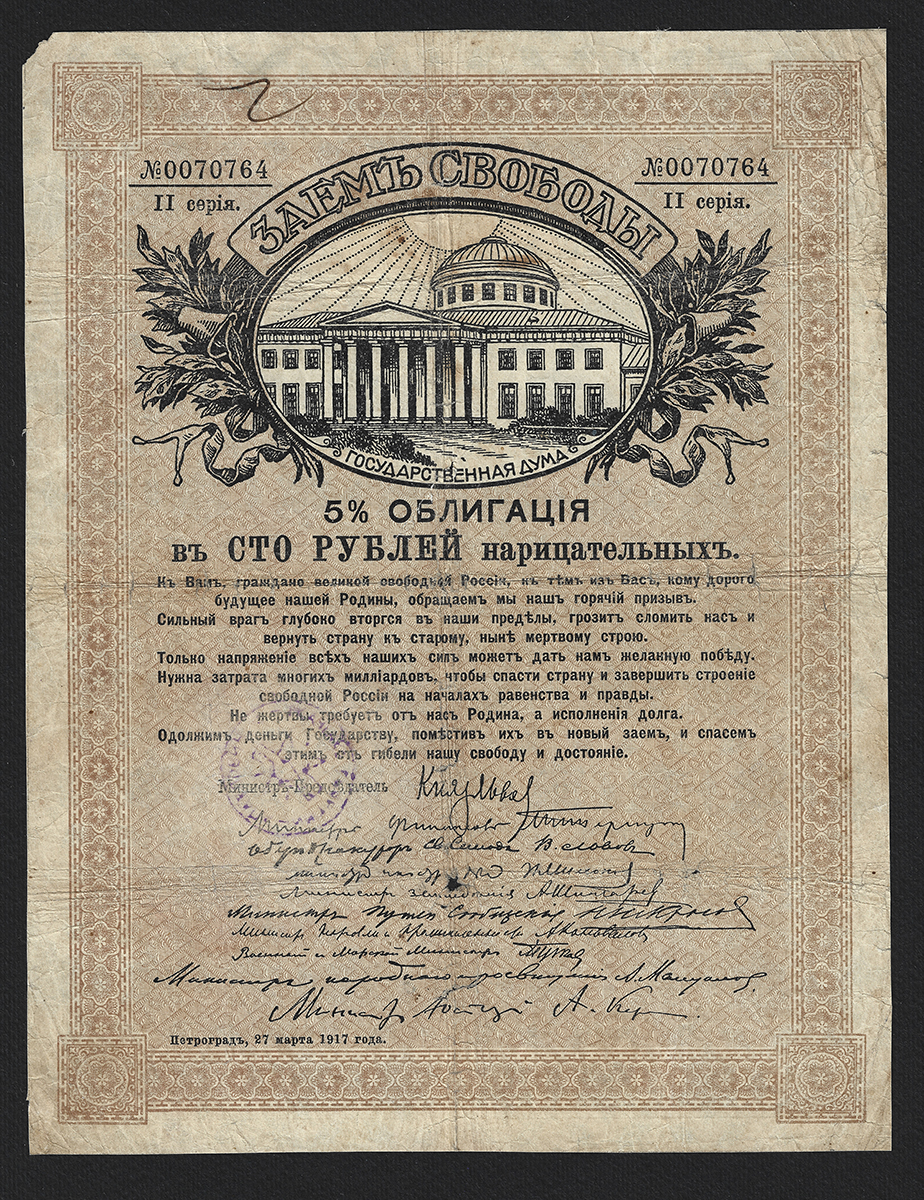 №0070764
II серія.
№0070764
II серія.
ЗАЕМЪ СВОБОДЫ
ГОСУДАРСТВЕННАЯ ДУМА
5% ОБЛИГАЦІЯ
въ СТО РУБЛЕЙ нарицательныхъ.
Къ Вамъ, граждане великой свободной Россіи, къ тѣмъ изъ Васъ, кому дорого
будущее нашей Родины, обращаемъ мы нашъ горячій призывъ.
Сильный врагъ глубоко вторгся въ наши предѣлы, грозитъ сломить насъ и
вернуть страну къ старому, нынѣ мертвому строю.
Только напряженіе всѣхъ нашихъ силъ можетъ дать намъ желанную побѣду.
Нужна затрата многихъ милліардовъ, чтобы спасти страну и завершить строеніе
свободной Россіи на началахъ равенства и правды.
Не жертвы требуетъ отъ насъ Родина, а исполненія долга.
Одолжимъ деньги Государству, помѣстивъ ихъ въ новый заемъ, и спасемъ
этимъ отъ гибели нашу свободу и достояніе.
Министръ-Предсѣдатель Князь Львов
Министръ финансовъ
Оберъ Прокуроръ Св. Синода В. Львовъ
Министръ земледѣлія А. Шингарев
Министръ Путей Сообщенія Н. Некрасов
Министръ Торговли и Промышленности А. Коновалов
Военный и Морской Министръ
Министръ народнаго просвѣщенія А. Мануйлов
Министръ Юстиціи А. Кер
Петроградъ, 27 марта 1917 года.